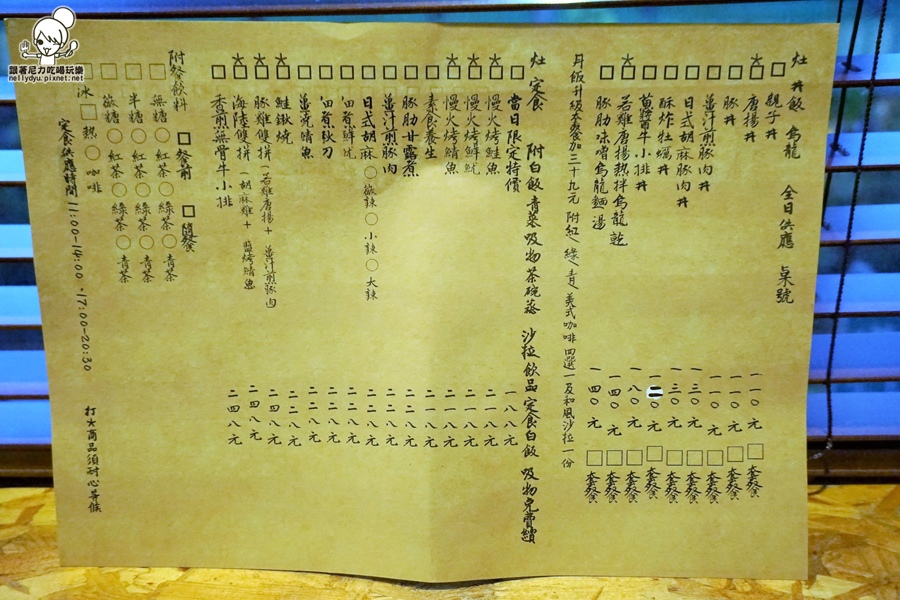 灶 丼飯 烏龍 全日供應 桌號
□親子丼 一一〇元 □套餐
☆□唐揚丼 一一〇元 □套餐
□豚丼 一一〇元 □套餐
□薑汁煎豚肉丼 一三〇元 □套餐
□日式胡麻豚肉丼 一三〇元 □套餐
□酥炸牡蠣丼
牛小排丼 一八〇元 □套餐
☆□若雞唐揚熱拌烏龍乾 一四〇元 □套餐
□豚肋味噌烏龍麵湯 一四〇元 □套餐
丼飯升級套餐加三十九元 附紅、綠、青、美式咖啡四選一及和風沙拉一份
灶 定食 附白飯 青菜 吸物 茶碗蒸 沙拉 飲品 定食白飯 吸物免費續
□當日限定特價 一八八元
☆□慢火烤鮭魚 二一八元
☆□慢火烤鱘魷 二一八元
☆□慢火烤鯖魚 二一八元
□素食養生 二一八元
□豚肋甘露煮 二二八元
□薑汁煎豚肉 二一八元
□日式胡麻 ○微辣 ○小辣 ○大辣 二一八元
□旧有鮮魷 二二八元
□旧有秋刀 二二八元
□薑燒鯖魚 二二八元
☆□鮭鍬燒 二四八元
☆□豚雞雙拼（若雞唐揚+薑汁煎豚肉 二四八元
☆□海陸雙拼（胡麻雞+鹽烤鯖魚 二四八元
□香煎無骨牛小排 二四八元
附餐飲料 □餐前 □隨餐
□無糖 ○紅茶 ○綠茶 ○青茶
□半糖 ○紅茶 ○綠茶 ○青茶
□微糖 ○紅茶 ○綠茶 ○青茶
□冰 □熱 ○咖啡
定食供應時間 11:00-14:00 · 17:00-20:30 打☆商品須耐心等候
跟著尼力吃喝玩樂
nellydyu.pixnet.net